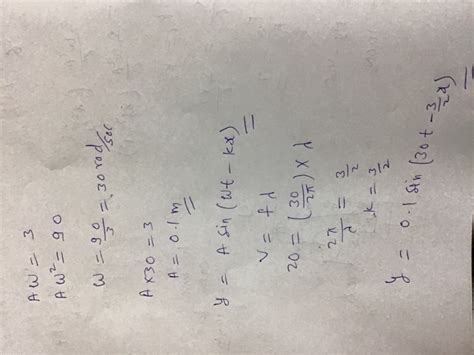 Aω = 3
Aω² = 90
ω = 90/3 = 30 rad/sec
A×30 = 3
A = 0.1 m
y = A sin (ωt - kx)
v = fλ
20 = (30/2π) × λ
2π/λ = 3/2
k = 3/2
y = 0.1 sin (30t - 3/2 x)